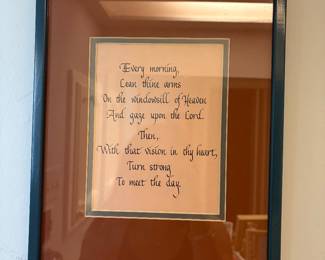 Every morning,
Lean thine arms
On the windowsill of Heaven
And gaze upon the Lord.
Then,
With that vision in thy heart,
Turn strong
To meet the day.